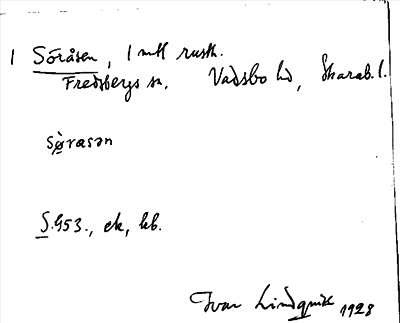 1 Söråsen, 1 mtl rusth.
Fredsbergs sn. Vadsbo hd, Skarab. l.
sø̀rasən
S. 953., ek, kb.
Ivar Lindquist 1928